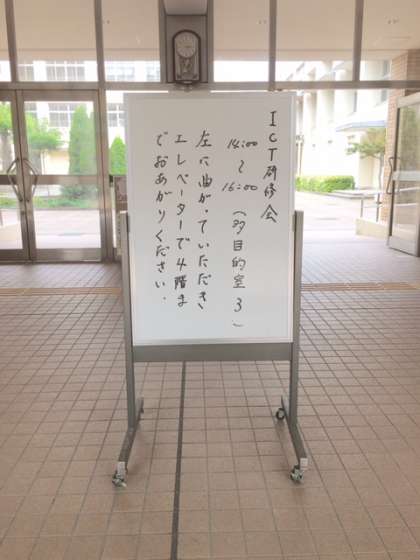 ICT研修会
14:00
〜
16:00
(多目的室3)
左に曲がっていただき
エレベーターで4階ま
でおあがりください.